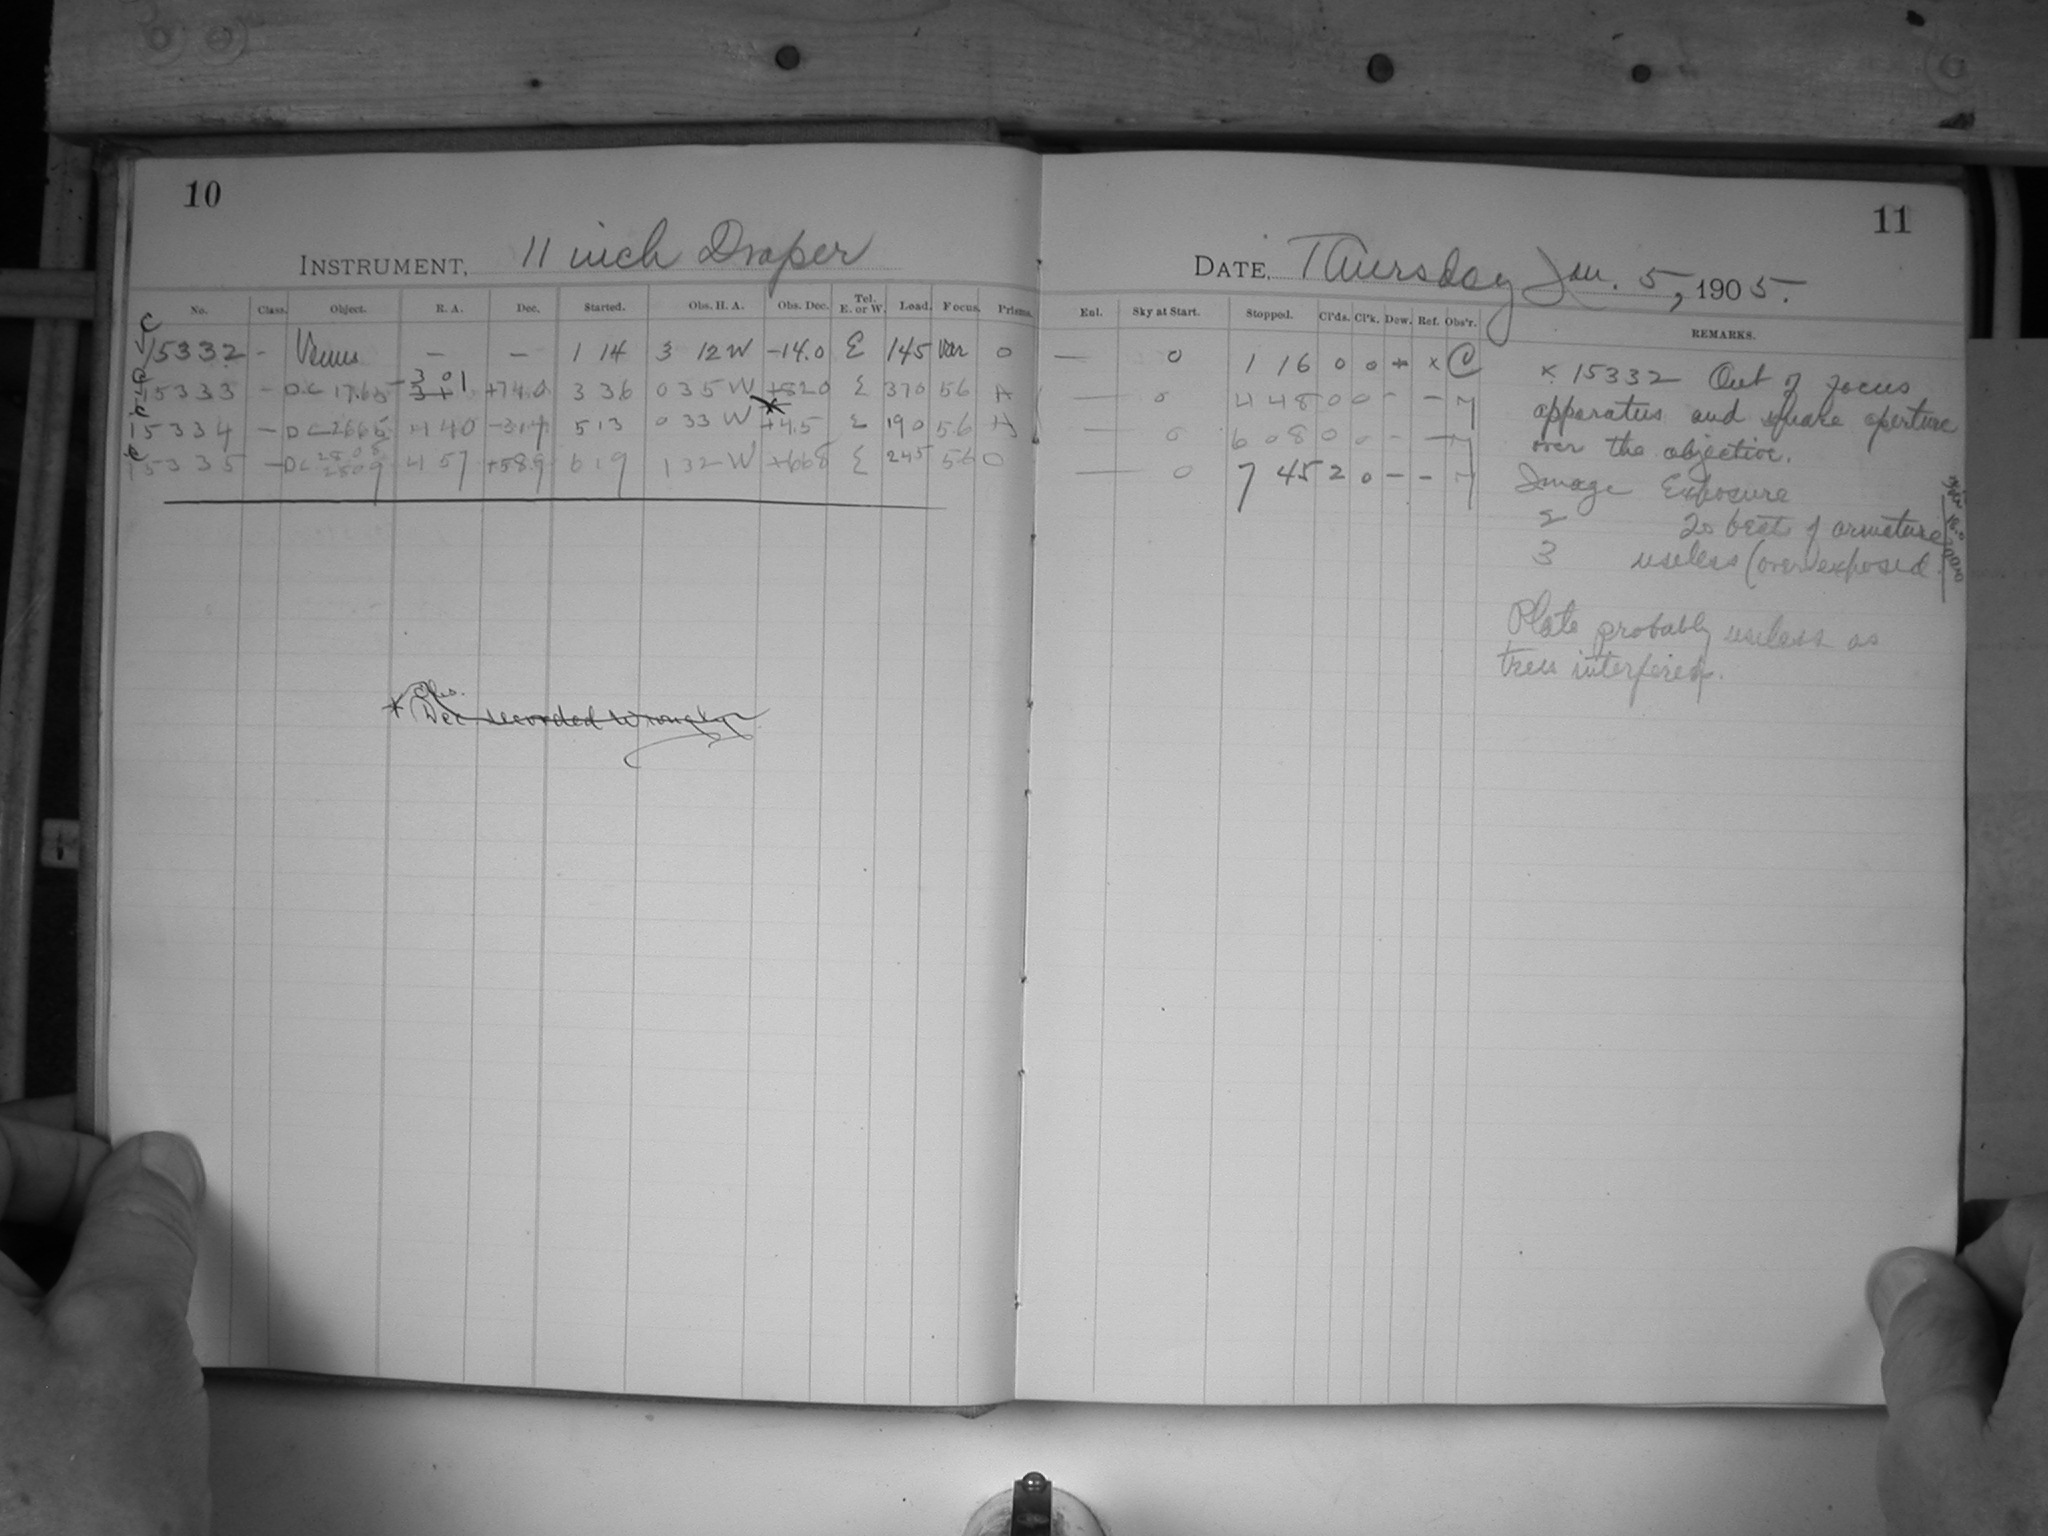 10
INSTRUMENT, 11 inch Draper
No. Class. Object. R. A. Dec. Started. Obs. H. A. Obs. Dec. Tel. E. or W. Load. Focus. Prisms.
C 15332 - Venus - - 1 14 3 12 W -14.0 E 145 Var 0
15333 - DC 1765 3 01 +74.0 3 36 0 35 W +82.0 E 370 56 A
15334 - DC 2666 4 40 5 13 0 33 W +4.5 E 190 5.6 A
15335 - DC 2808 2809 4 57 +58.9 6 19 1 32 W +66.8 E 245 56 0
* Obs. Dec. recorded wrongly
11
DATE, Thursday Jan. 5, 1905.
Enl. Sky at Start. Stopped. Cl'ds. Cl'k. Dew. Ref. Obs'r. REMARKS.
— 0 1 16 0 0 x C
— 0 4 48 0 0 - -
— 0 6 08 0 0 - -
— 0 7 45 2 0 - -
x 15332 Out of focus
apparatus and square aperture
over the objective.
Image Exposure
2 20 beats of armature
3 useless (overexposed
Plate probably useless as
trees interfered.